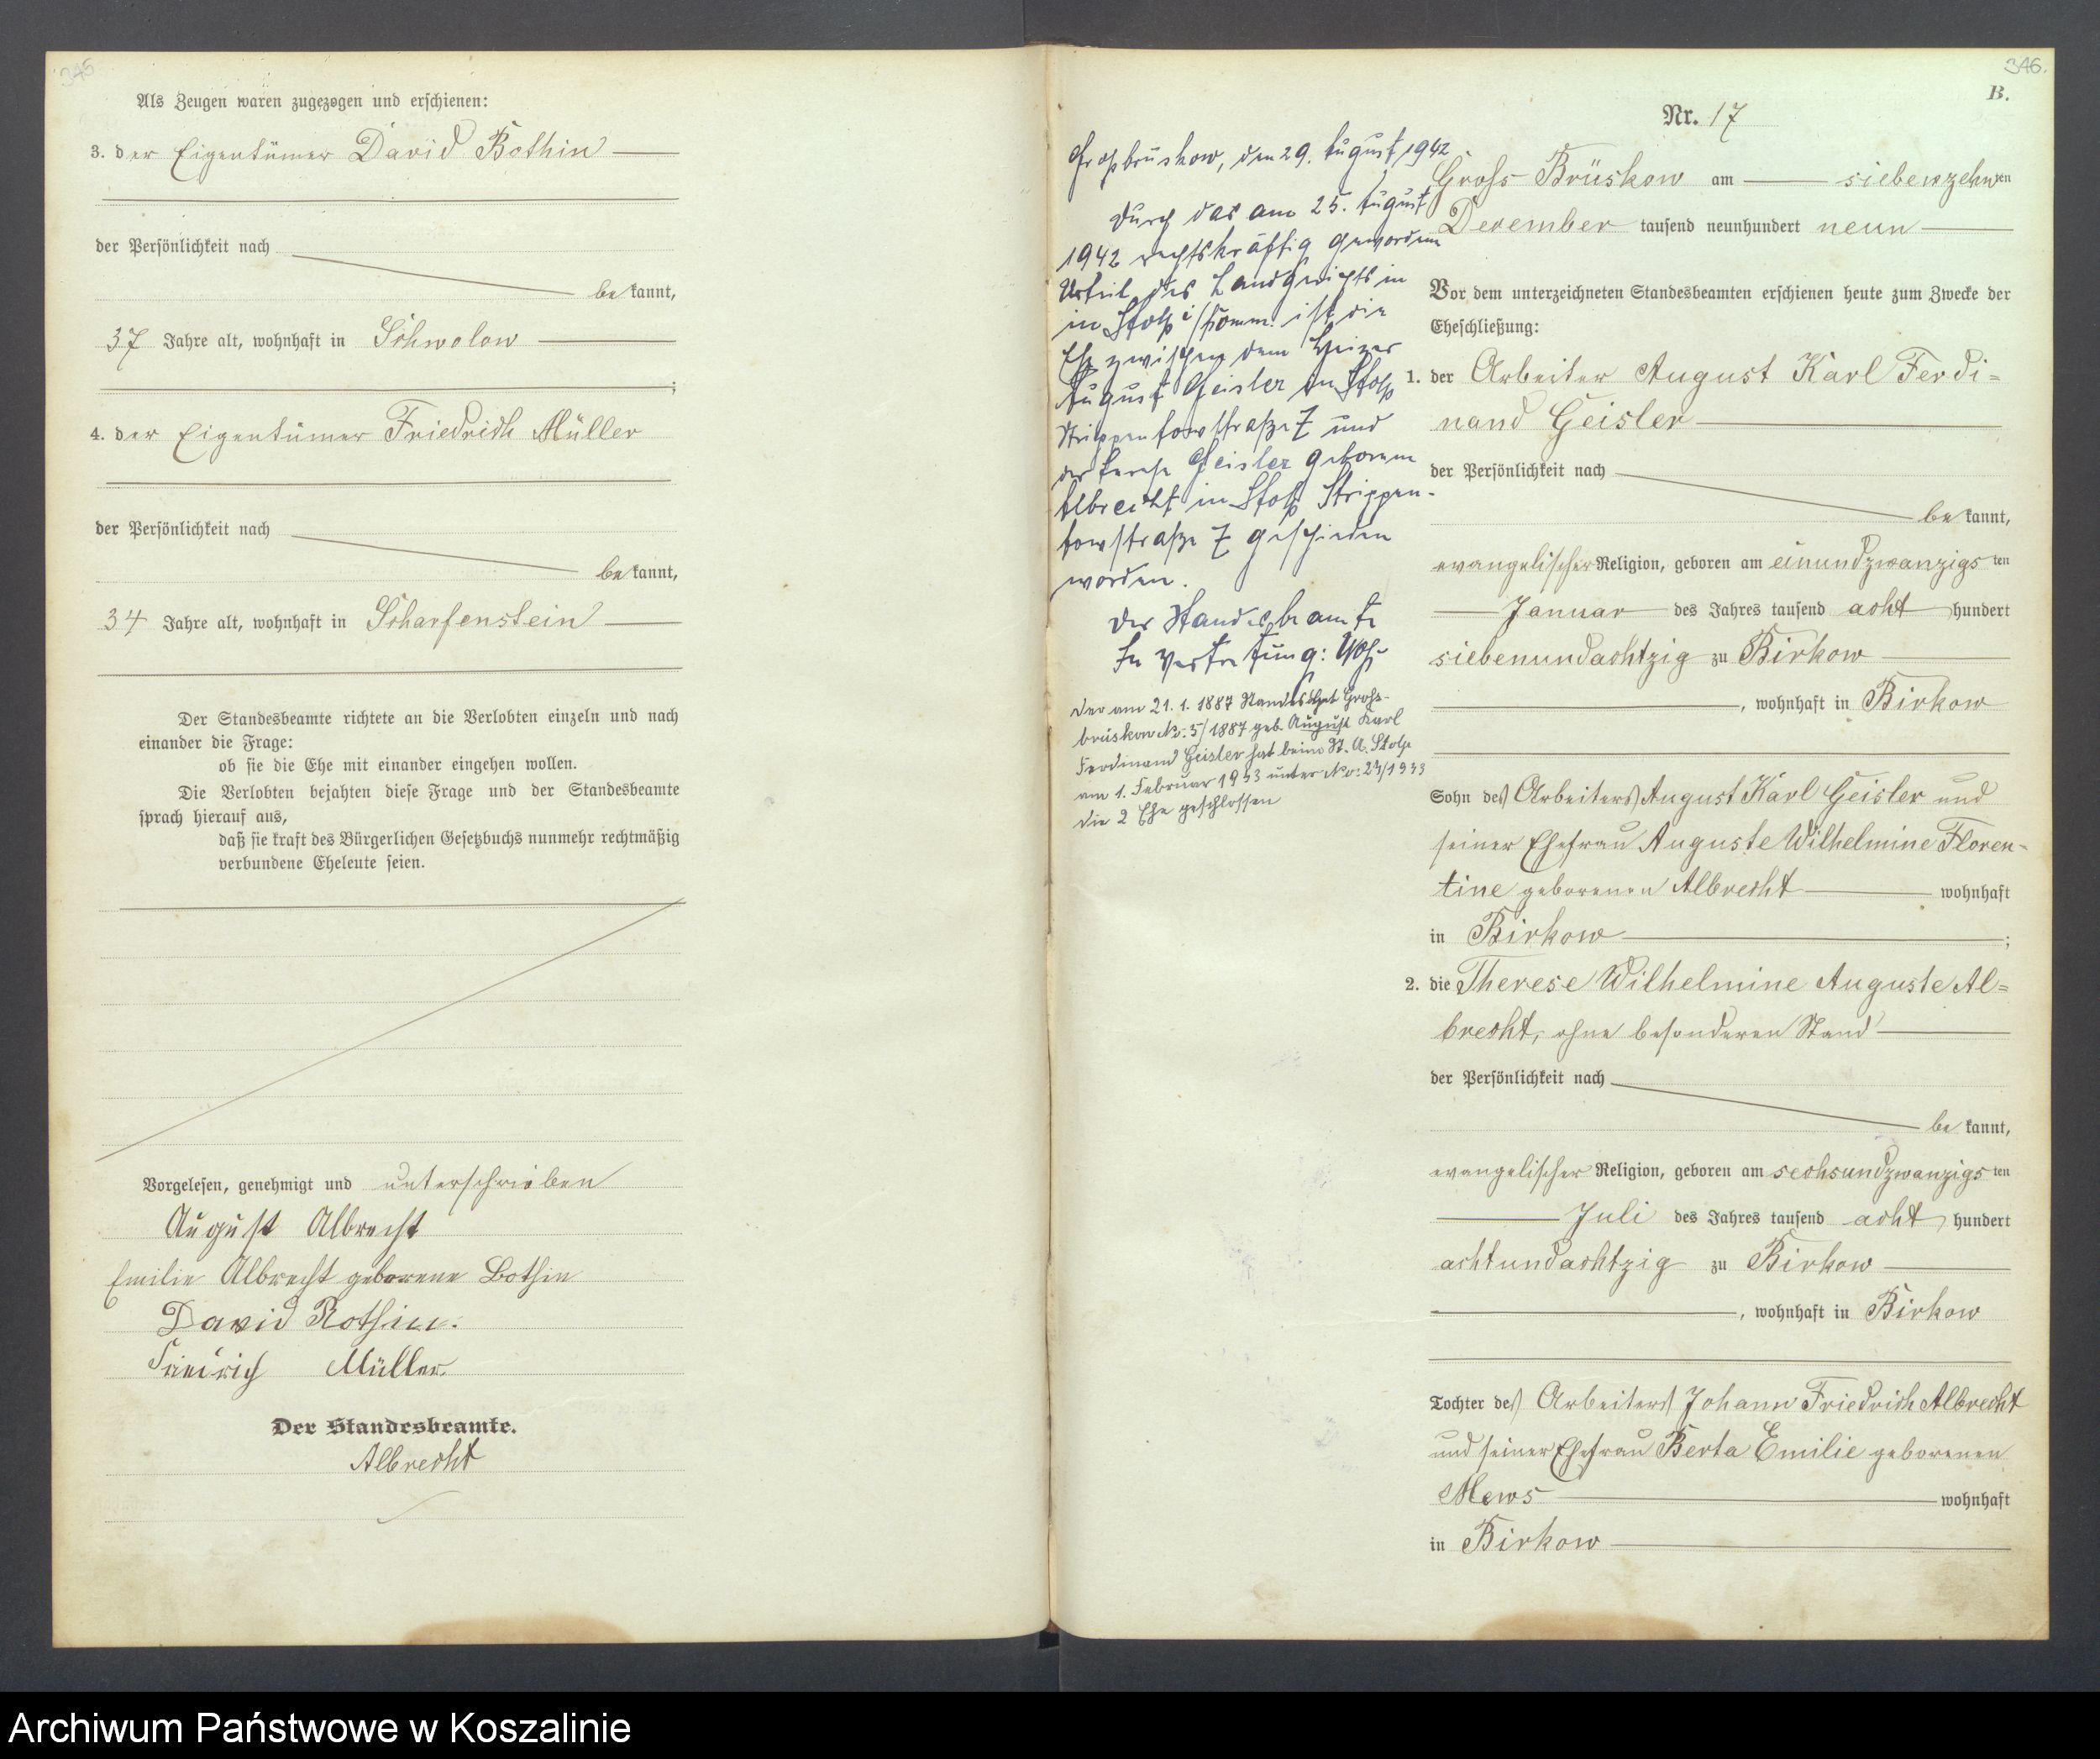 345
Als Zeugen waren zugezogen und erschienen:
3. der Eigentümer David Bothin
der Persönlichkeit nach
be kannt,
37 Jahre alt, wohnhaft in Schwolow
;
4. der Eigentümer Friedrich Müller
der Persönlichkeit nach
be kannt,
34 Jahre alt, wohnhaft in Scharfenstein
Der Standesbeamte richtete an die Verlobten einzeln und nach
einander die Frage:
ob sie die Ehe mit einander eingehen wollen.
Die Verlobten bejahten diese Frage und der Standesbeamte
sprach hierauf aus,
daß sie kraft des Bürgerlichen Gesetzbuchs nunmehr rechtmäßig
verbundene Eheleute seien.
Vorgelesen, genehmigt und unterschrieben
August Albrecht
Emilie Albrecht geborene Bothin
David Bothin.
Friedrich Müller.
Der Standesbeamte.
Albrecht
346.
B.
Nr. 17
Großbrüskow, den 29. August 1942
Durch das am 25. August
1942 rechtskräftig gewordene
Urteil des Landgerichts in
in Stolp i/Pomm. ist die
Ehe zwischen dem Heizer
August Geisler in Stolp
Strippentowstraße 7 und
der Geisler geborene
Albrecht in Stolp Strippen-
towstraße 7 geschieden
worden.
Der Standesbeamte
In Vertretung:
Der am 21. 1. 1887 Standesamt Groß-
brüskow No: 5/1887 geb. August Karl
Ferdinand Geisler hat beim St. A. Stolp
am 1. Februar 1943 unter No: 23/1943
die 2 Ehe geschlossen
Gross Brüskow am siebenzehnten
Dezember tausend neunhundert neun
Vor dem unterzeichneten Standesbeamten erschienen heute zum Zwecke der
Eheschließung:
1. der Arbeiter August Karl Ferdi=
nand Geisler
der Persönlichkeit nach
be kannt,
evangelischer Religion, geboren am einundzwanzigs ten
Januar des Jahres tausend acht hundert
siebenundachtzig zu Birkow
, wohnhaft in Birkow
Sohn des Arbeiters August Karl Geisler und
seiner Ehefrau Auguste Wilhelmine Floren-
tine geborenen Albrecht wohnhaft
in Birkow ;
2. die Therese Wilhelmine Auguste Al=
brecht, ohne besonderen Stand
der Persönlichkeit nach
be kannt,
evangelischer Religion, geboren am sechsundzwanzigs ten
Juli des Jahres tausend acht hundert
achtundachtzig zu Birkow
, wohnhaft in Birkow
Tochter des Arbeiters Johann Friedrich Albrecht
und seiner Ehefrau Berta Emilie geborenen
Mews wohnhaft
in Birkow
Archiwum Państwowe w Koszalinie